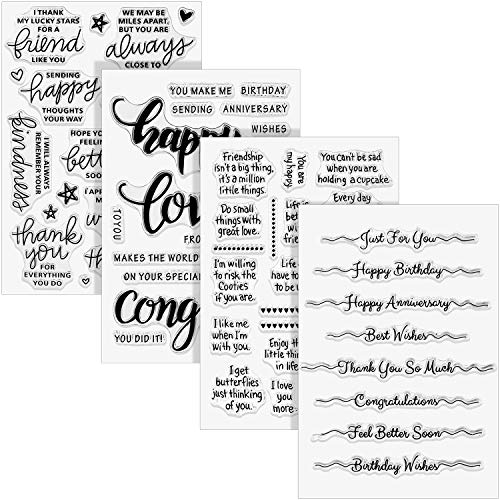 I THANK
MY LUCKY STARS
FOR A
friend
LIKE YOU
WE MAY BE
MILES APART,
BUT YOU ARE
always
CLOSE TO
SENDING
happy
THOUGHTS
YOUR WAY
kindness
I WILL ALWAYS
REMEMBER YOUR
HOPE YOU
thank
you
FOR
EVERYTHING
YOU DO
YOU ME ME
BIRTHDAY
SENDING
ANNIVERSARY
WISHES
happy
TO YOU
MAKES THE WORLD
ON YOUR SPECIAL
YOU DID IT!
Friendship
isn't a big thing,
it's a million
little things.
You are
my happy.
You can't be sad
when you are
holding a cupcake.
Every day
Do small
things with
great love.
Life is
I'm willing
to risk the
Cooties
if you are.
Life
have to
to be
I like me
when I'm
with you.
Enjoy the
little thin
in life
I get
butterflies
just thinking
of you.
I love
you
more...
Just For You
Happy Birthday
Happy Anniversary
Best Wishes
Thank You So Much
Congratulations
Feel Better Soon
Birthday Wishes